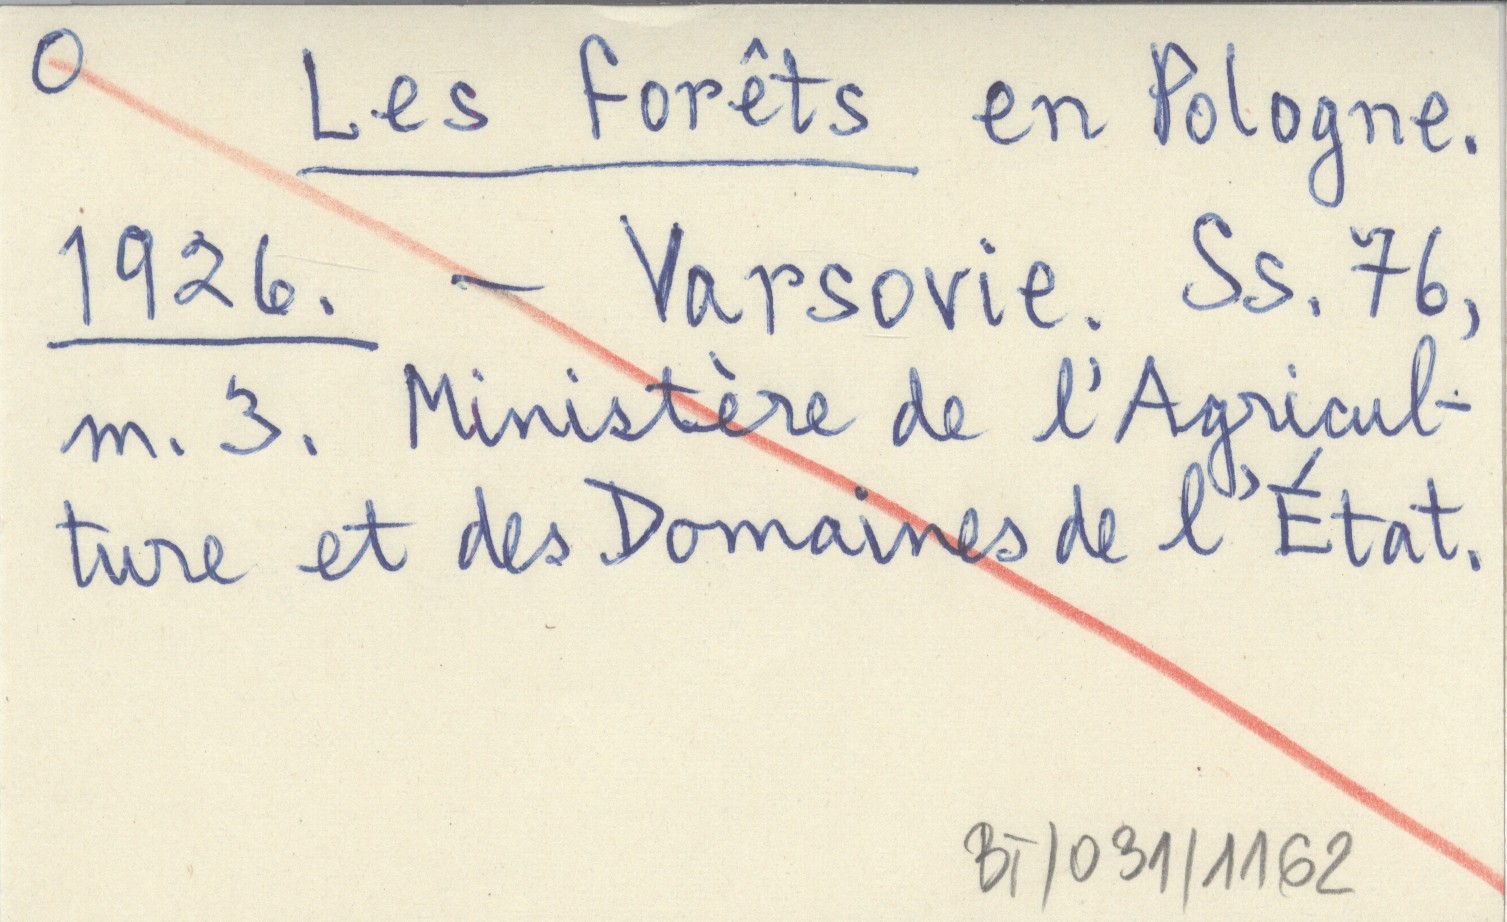 O Les forêts en Pologne.
1926. — Varsovie. Ss. 76,
m. 3. Ministère de l'Agricul-
ture et des Domaines de l'État.
BT/031/1162